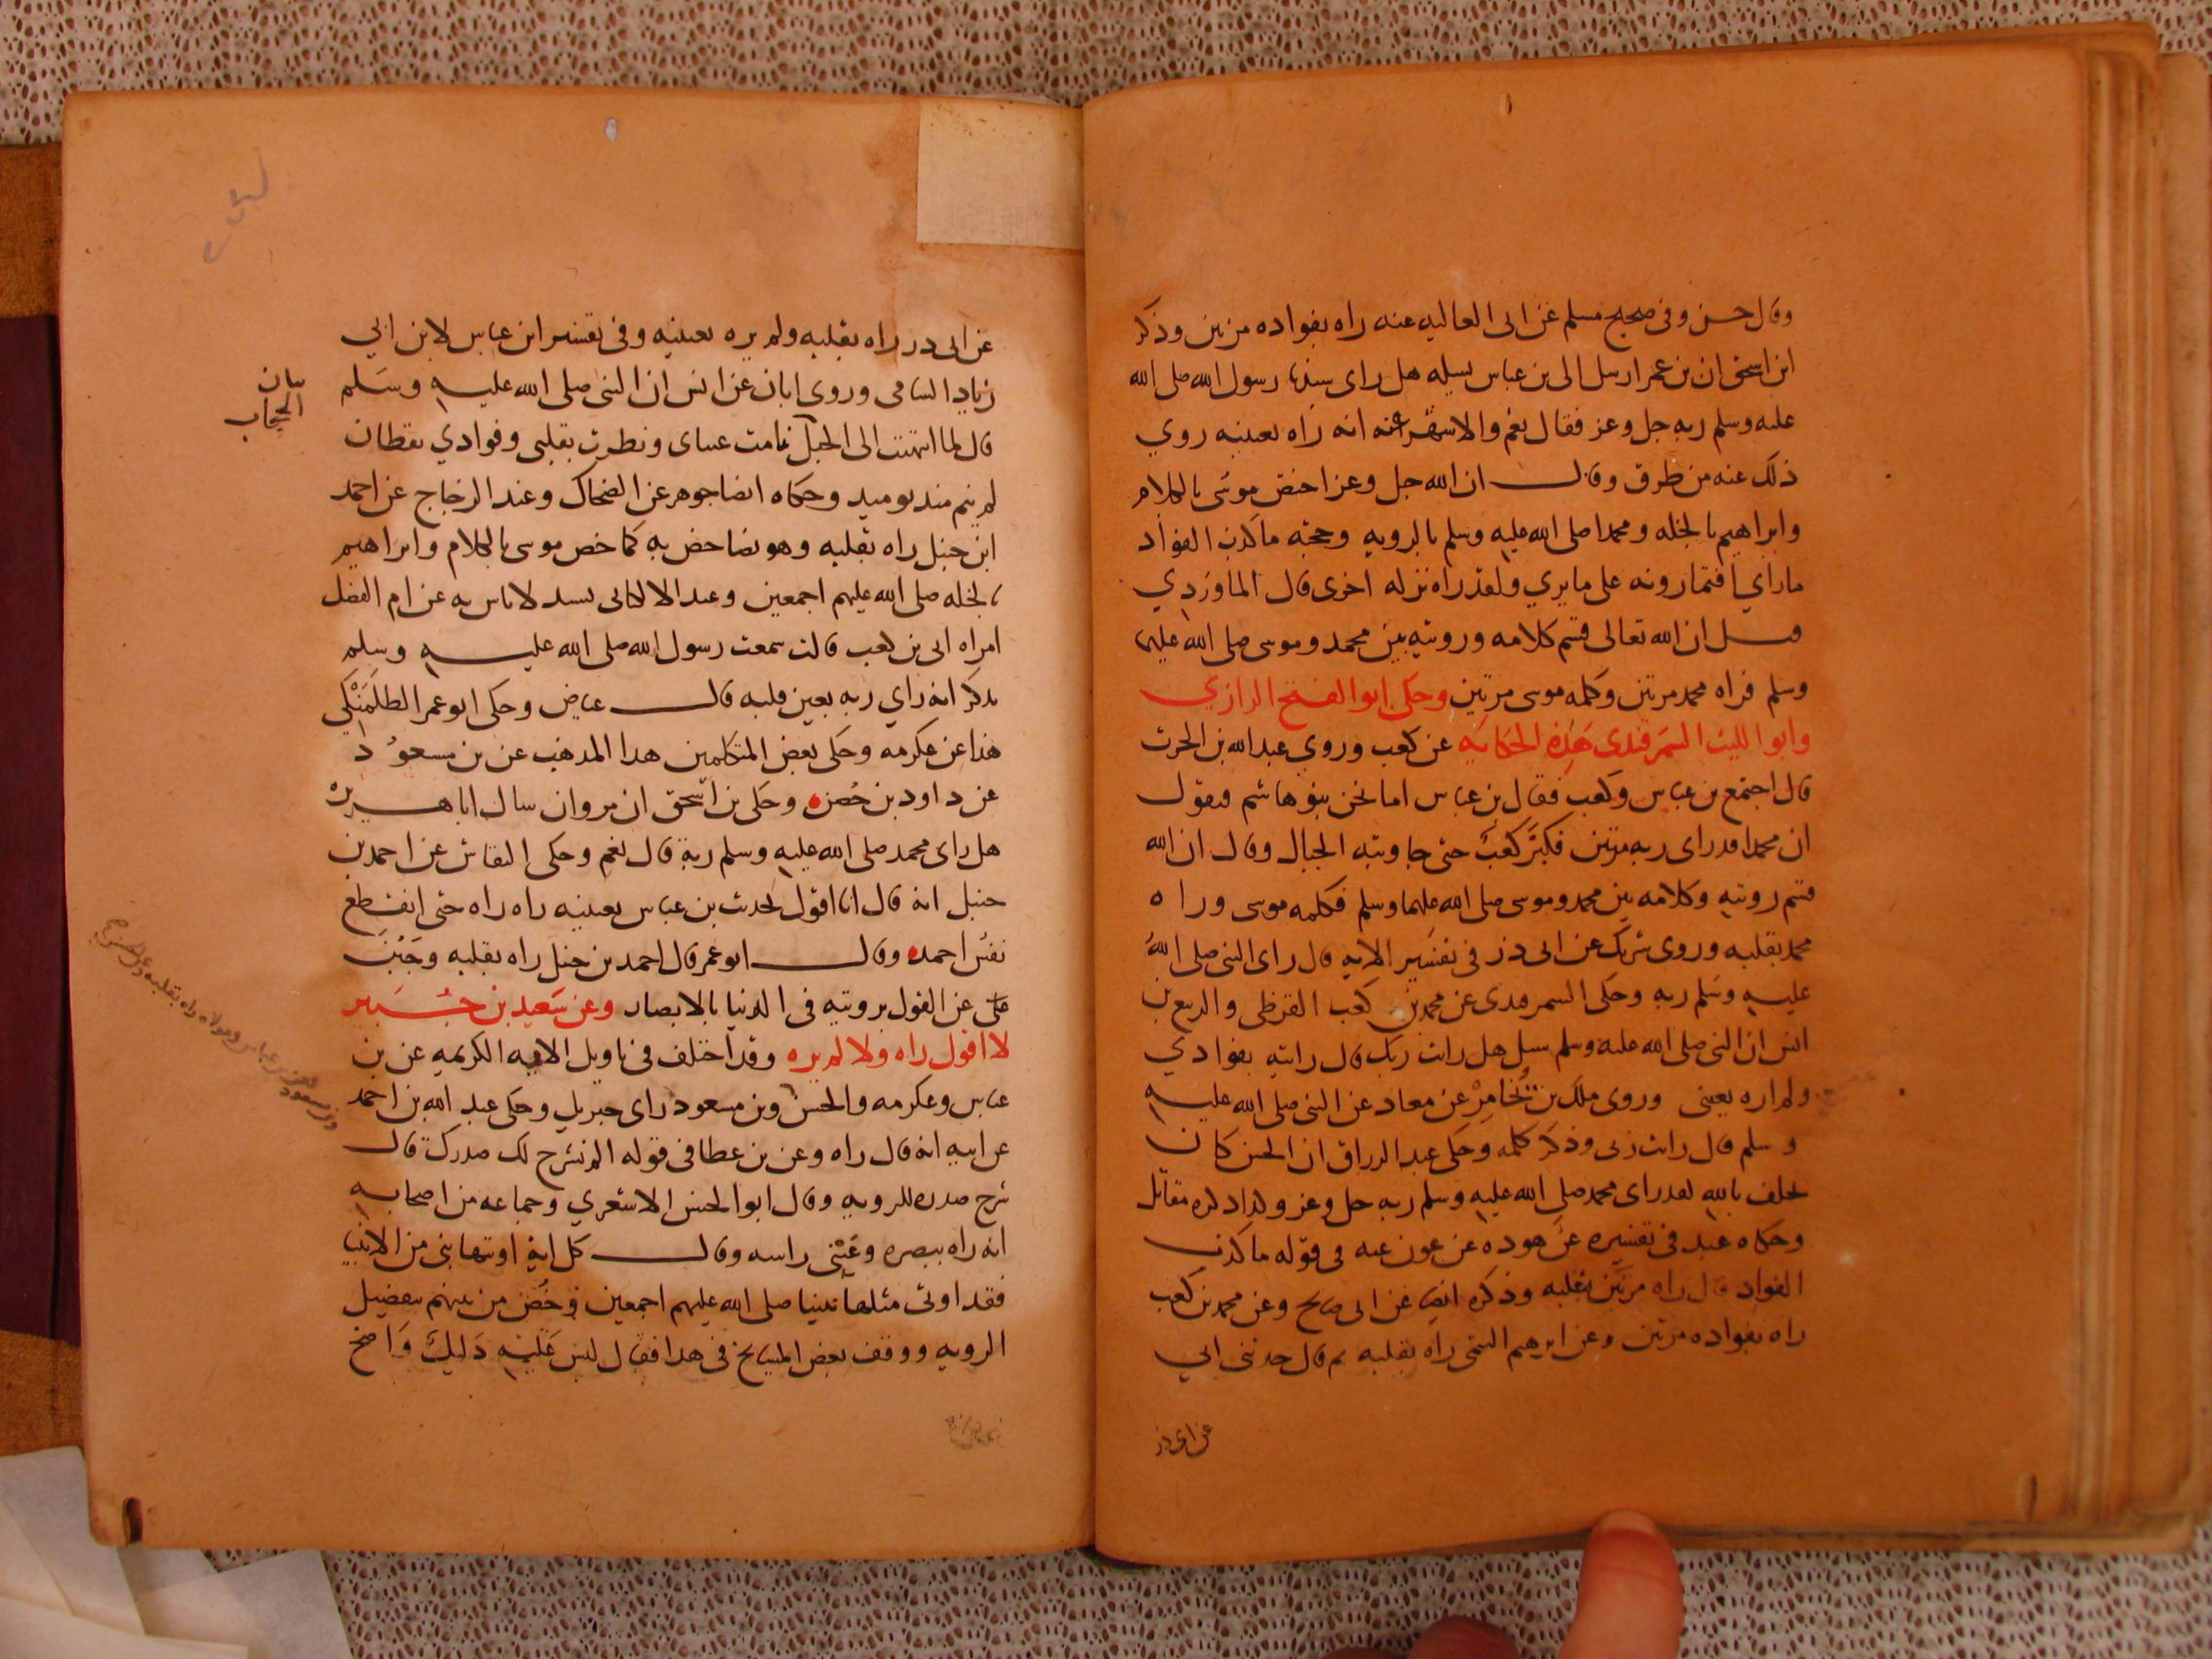 وقال حسن وفى صحيح مسلم عن ابى العاليه عنه راه بفواده مرتين وذكر
ابن اسحق ان بن عمر ارسل الى بن عباس يسله هل راى سيدنا رسول الله صلى الله
عليه وسلم ربه جل وعز فقال نعم والاشهر عنه انه راه بعينيه روي
ذلك عنه من طرق وقال ان الله جل وعز اختص موسى بالكلام
وابراهيم بالخله ومحمدا صلى الله عليه وسلم بالرويه وحجته ما كذب الفواد
ماراي افتمارونه على مايري ولقد راه نزله اخرى قال الماوردي
قيل ان الله تعالى قسم كلامه ورويته بين محمد وموسى صلى الله عليهما
وسلم فراه محمد مرتين وكلمه موسى مرتين وحكى ابوا الفتح الرازي
وابوا الليث السمرقندى هذه الحكايه عن كعب وروي عبد الله بن الحرث
قال اجتمع بن عباس وكعب فقال بن عباس اما نحن بنو هاشم فيقول
ان محمدا قد راى ربه مرتين فكبر كعب حتى جاوبته الجبال وقال ان الله
قسم رويته وكلامه بين محمد وموسى صلى الله عليهما وسلم فكلمه موسى وراه
محمد بقلبه وروى شريك عن ابى ذر فى تفسير الايه قال راى النبى صلى الله
عليه وسلم ربه وحكى السمرقندى عن محمد بن كعب القرظى والربيع بن
انس ان النبى صلى الله عليه وسلم سيل هل رايت ربك قال رايته بفوادي
ولم اره بعينى وروى ملك بن يُخَامِرْ عن معاد عن النبى صلى الله عليه
وسلم قال رايت ربى وذكر كلمه وحكى عبد الرزاق ان الحسن كان
يحلف بالله لقد راى محمد صلى الله عليه وسلم ربه جل وعز ولذا ذكره مقاتل
وحكاه عبد فى تفسيره عن هوده عن عون عنه فى قوله ما كذب
الفواد قال راه مرتين بقلبه وذكره ايضا عن ابى صالح وعن محمد بن كعب
راه بفواده مرتين وعن ابرهيم التيمى راه بقلبه ثم قال حدثنى ابي
عن ابى ذر
عن ابى در راه بقلبه ولم يره بعينيه وفى تفسير ابن عباس لابن ابي
زياد السامى وروى ابان عن انس ان النبى صلى الله عليه وسلم
قال لما انتهت الى الحجاب نامت عيناى ونظرت بقلبى وفوادي يقظان
بيان
الحجاب
لم ينم مند يوميد وحكاه ايضا جوهر عن الضحاك وعند الزجاج عن احمد
ابن حنبل راه بقلبه وهو نصا خص به كما خص موسى بالكلام وابراهيم
بالخله صلى الله عليهم اجمعين وعند الالكانى بسند لاباس به عن ام الفضل
امراه ابى بن كعب قالت سمعت رسول الله صلى الله عليه وسلم
يذكر انه راي ربه بعين قلبه قال عياض وحكى ابو عمر الطلمنكي
هذا عن عكرمه وحكى بعض المتكلمين هدا المدهب عن بن مسعود
عن داود بن حُصَن وحكى بن اسحق ان مروان سال ابا هريره
هل راى محمد صلى الله عليه وسلم ربه قال نعم وحكى النقاش عن احمد بن
حنبل انه قال انا اقول لحديث بن عباس بعينيه راه راه حتى انقطع
نفس احمد وقال ابو عمر قال احمد بن حنبل راه بقلبه وجَبُنَ
على عن القول برويته فى الدنيا بالابصار وعن سعيد بن جُبَير
لا اقول راه ولا لم يره وقد اختلف فى تاويل الايه الكريمه عن بن
عباس وعكرمه والحسن وبن مسعود راى جبريل وحكى عبد الله بن احمد
عن ابيه انه قال راه وعن بن عطا فى قوله الم نشرح لك صدرك قال
شرح صدره للرويه وقال ابوا الحسن الاشعري وجماعه من اصحابه
انه راه ببصره وعَيْنى راسه وقال كل اية اوتيها نبى من الانبيا
فقد اوتى مثلها نبينا صلى الله عليهم اجمعين وخُص من بينهم بتفضيل
الرويه ووقف بعض المشايخ فى هدا فقال ليس عليه دليل واضح